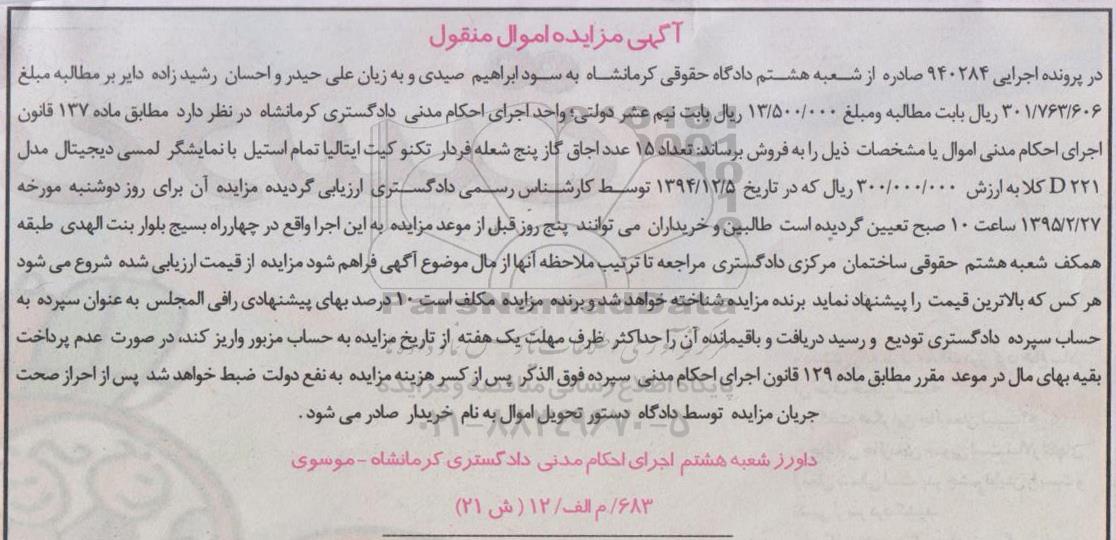 آگهی مزایده اموال منقول
در پرونده اجرایی ۹۴۰۲۸۴ صادره از شعبه هشتم دادگاه حقوقی کرمانشاه به سود ابراهیم صیدی و به زیان علی حیدر و احسان رشید زاده دایر بر مطالبه مبلغ
۳۰۱/۷۶۳/۶۰۶ ریال بابت مطالبه ومبلغ ۱۳/۵۰۰/۰۰۰ ریال بابت نیم عشر دولتی؛ واحد اجرای احکام مدنی دادگستری کرمانشاه در نظر دارد مطابق ماده ۱۳۷ قانون
اجرای احکام مدنی اموال با مشخصات ذیل را به فروش برساند: تعداد ۱۵ عدد اجاق گاز پنج شعله فردار تکنو کیت ایتالیا تمام استیل با نمایشگر لمسی دیجیتال مدل
D ۲۲۱ کلا به ارزش ۳۰۰/۰۰۰/۰۰۰ ریال که در تاریخ ۱۳۹۴/۱۲/۵ توسط کارشناس رسمی دادگستری ارزیابی گردیده مزایده آن برای روز دوشنبه مورخه
۱۳۹۵/۲/۲۷ ساعت ۱۰ صبح تعیین گردیده است طالبین و خریداران می توانند پنج روز قبل از موعد مزایده به این اجرا واقع در چهارراه بسیج بلوار بنت الهدی طبقه
همکف شعبه هشتم حقوقی ساختمان مرکزی دادگستری مراجعه تا ترتیب ملاحظه آنها از مال موضوع آگهی فراهم شود مزایده از قیمت ارزیابی شده شروع می شود
هر کس که بالاترین قیمت را پیشنهاد نماید برنده مزایده شناخته خواهد شد و برنده مزایده مکلف است ۱۰ درصد بهای پیشنهادی رافی المجلس به عنوان سپرده به
حساب سپرده دادگستری تودیع و رسید دریافت و باقیمانده آن را حداکثر ظرف مهلت یک هفته از تاریخ مزایده به حساب مزبور واریز کند، در صورت عدم پرداخت
بقیه بهای مال در موعد مقرر مطابق ماده ۱۲۹ قانون اجرای احکام مدنی سپرده فوق الذکر پس از کسر هزینه مزایده به نفع دولت ضبط خواهد شد پس از احراز صحت
جریان مزایده توسط دادگاه دستور تحویل اموال به نام خریدار صادر می شود.
داورز شعبه هشتم اجرای احکام مدنی دادگستری کرمانشاه - موسوی
۶۸۳/ م الف/ ۱۲ ( ش ۲۱)
ParsNamadData
پایگاه اطلاع رسانی مناقصه و مزایده
۰۲۱-۸۸۳۴۹۶۷۰-۵